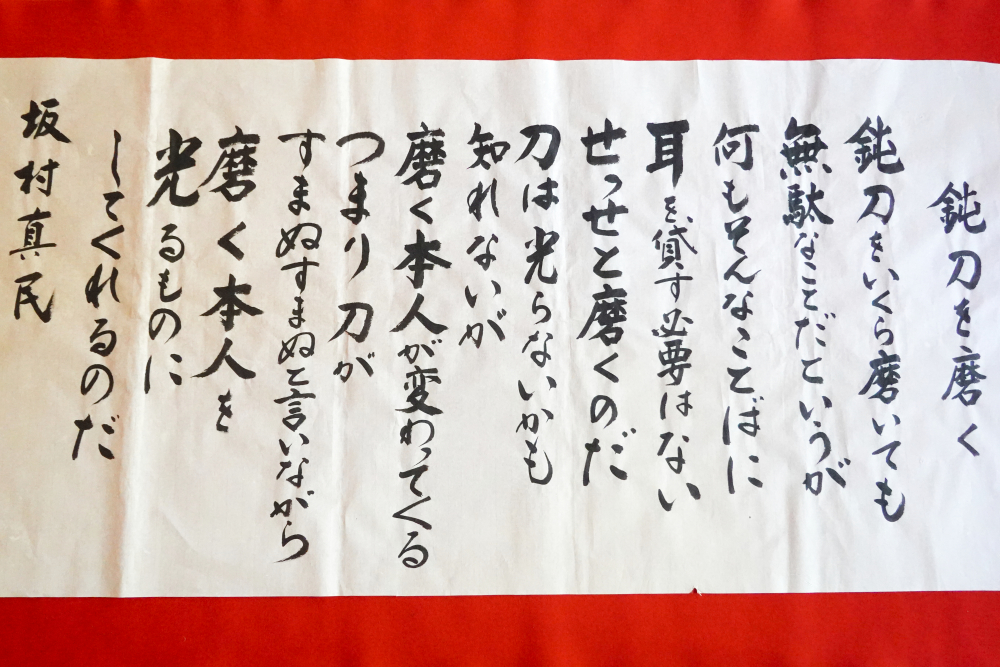 鈍刀を磨く
鈍刀をいくら磨いても
無駄なことだというが
何もそんなことばに
耳を貸す必要はない
せっせと磨くのだ
刀は光らないかも
知れないが
磨く本人が変わってくる
つまり刀が
すまぬすまぬと言いながら
磨く本人を
光るものに
してくれるのだ
坂村真民